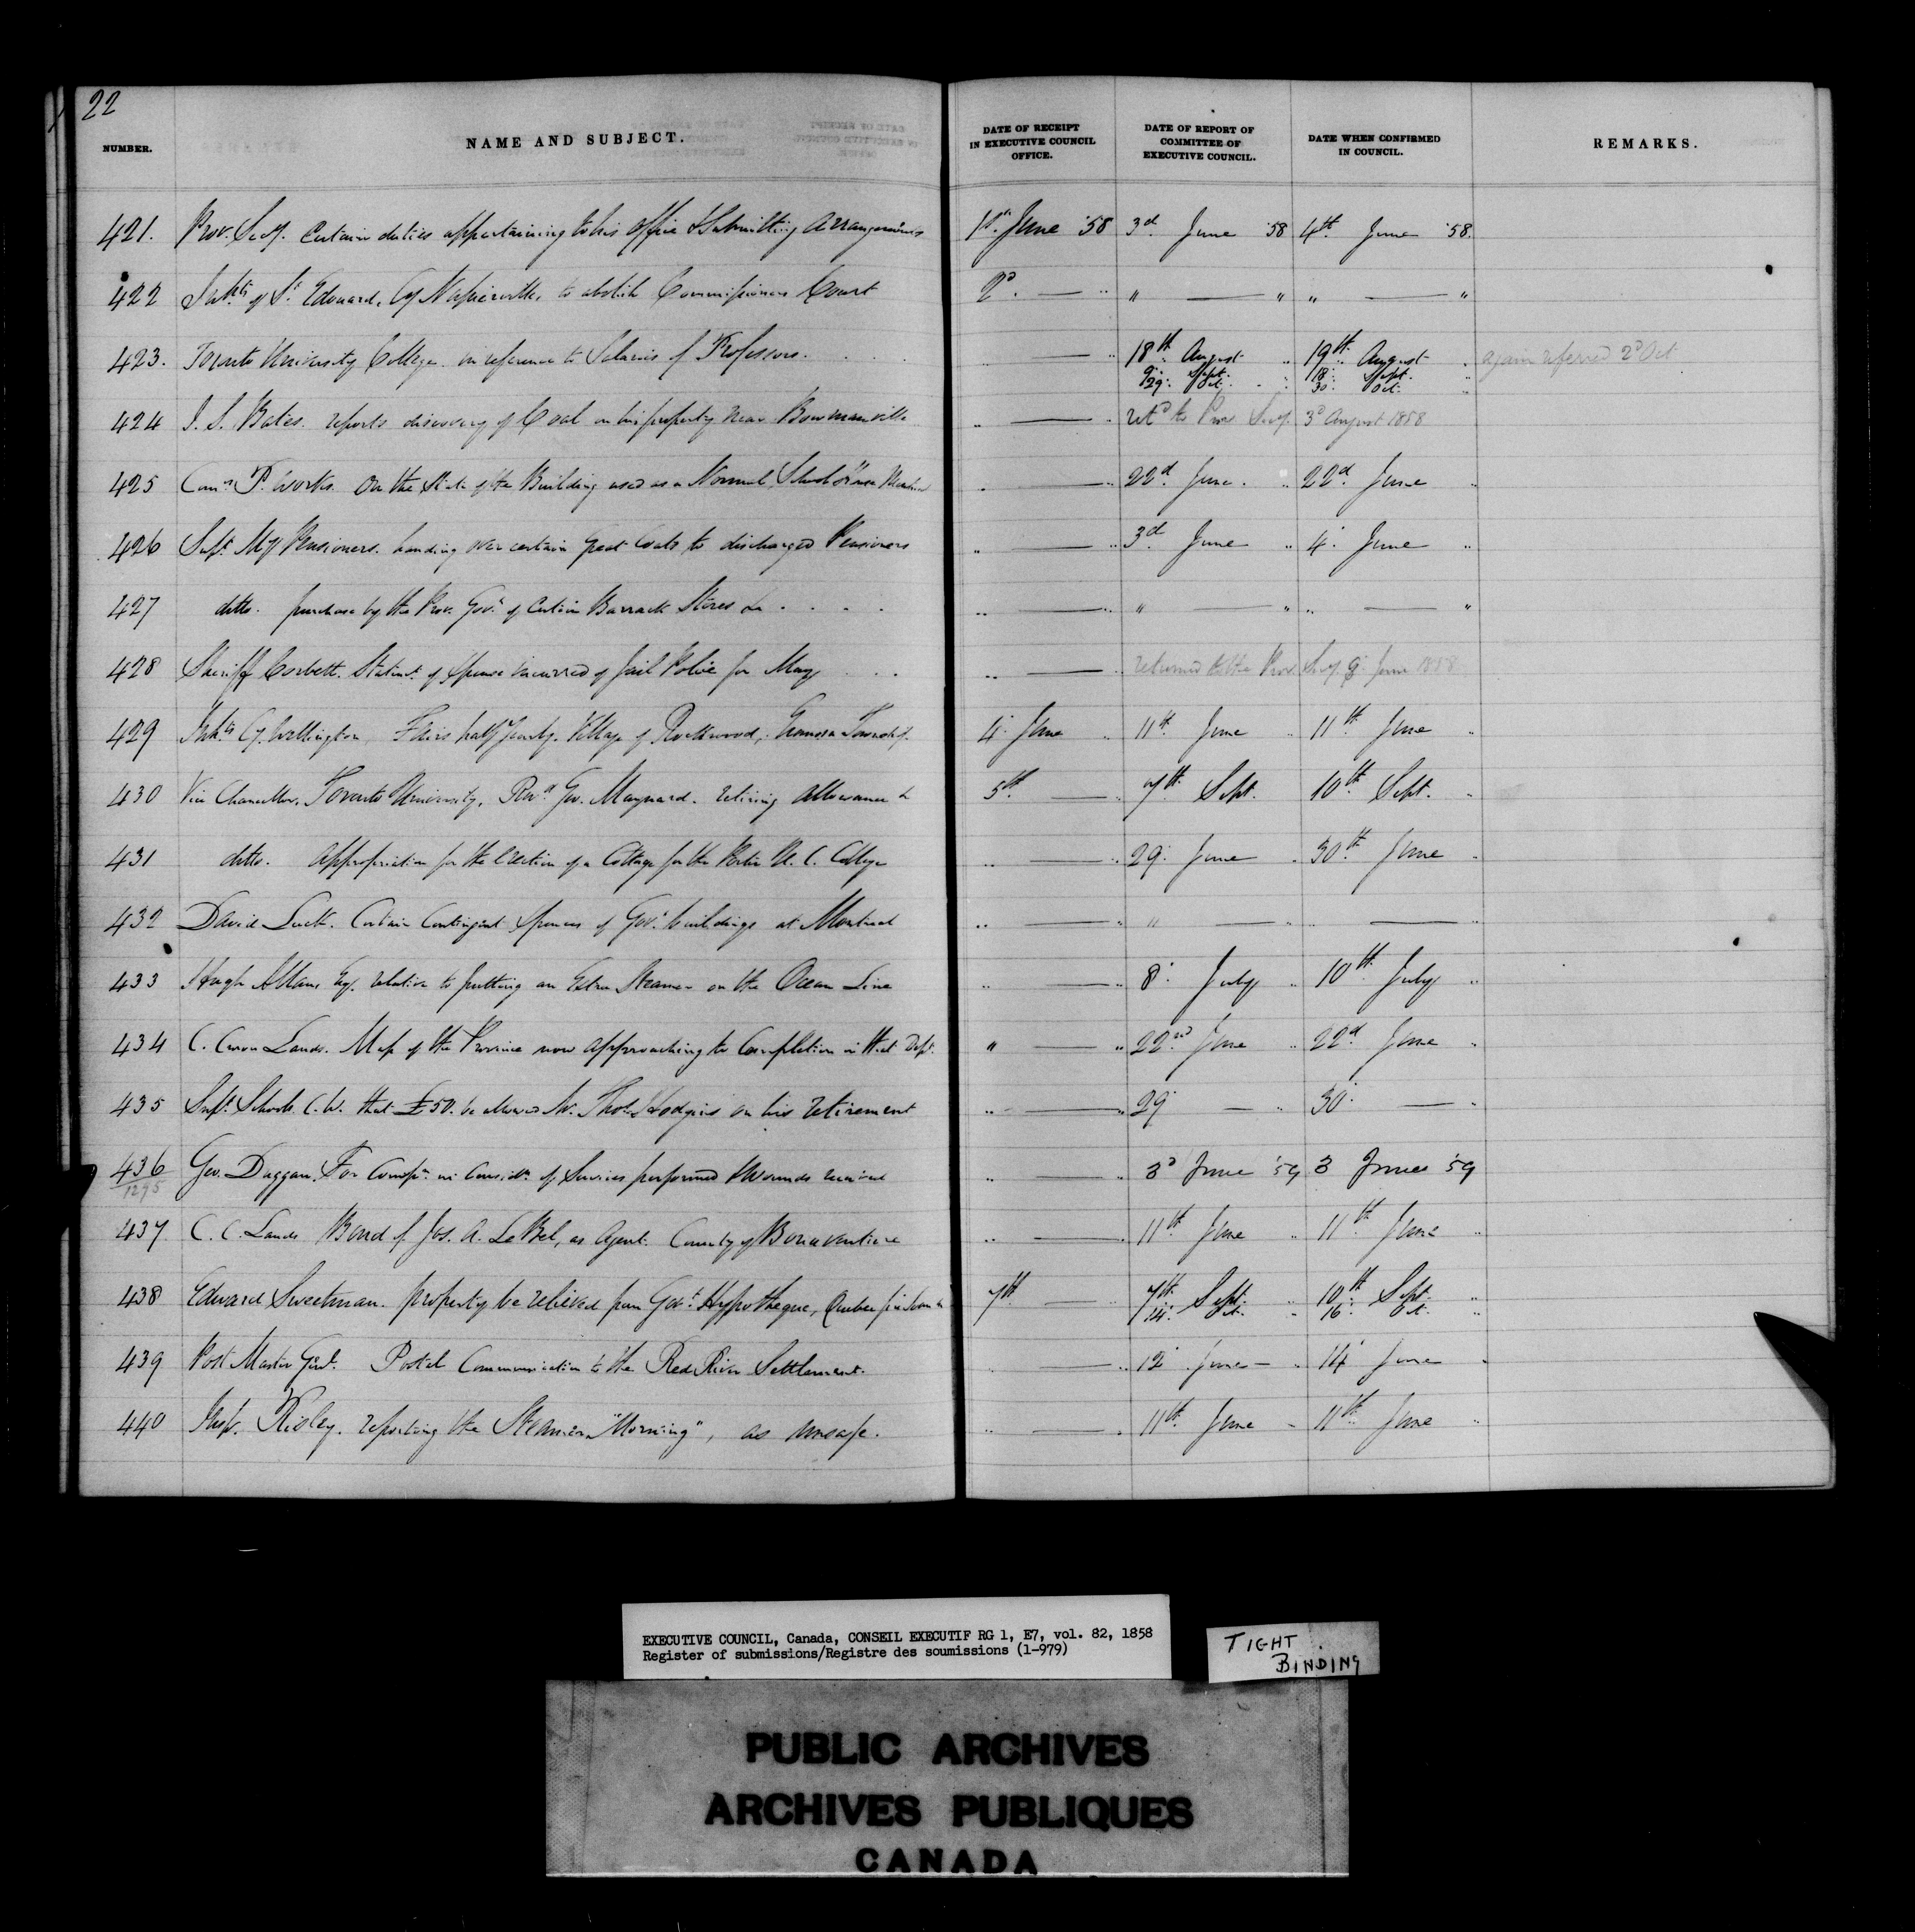 22
NUMBER. NAME AND SUBJECT. DATE OF RECEIPT IN EXECUTIVE COUNCIL OFFICE. DATE OF REPORT OF COMMITTEE OF EXECUTIVE COUNCIL. DATE WHEN CONFIRMED IN COUNCIL. REMARKS.
421. Prov. Secy. Certain duties appertaining to his Office & Submitting Arrangements 1st June '58 3d June '58 4th June '58.
422 Inhts of St Edouard, Cy Napierville, to abolish Commissioners Court 2d " " " "
423. Toronto University College in reference to Salaries of Professors. 18th August 19th August again referred 2d Oct
9 Sept. 18 Sept.
29 Oct. 30 Oct.
424 J. S. Bates. reports discovery of Coal on his property near Bowmanville retd to Prov Secy. 3d August 1858
425 Comrs P. Works. On the State of the Building used as a Normal School 22d June 22d June
426 Supt Mily Pensioners. handing over certain Great Coats to discharged Pensioners 3d June 4 June
427 ditto. purchase by the Prov. Govt of Certain Barrack Stores &c " " " "
428 Sheriff Corbett. Statemt of Expense incurred of Jail Police for May returned to the Prov Secy. 9 June 1858
429 Inhts Cy. Wellington, Fairs half yearly. Village of Rockwood, Eramosa Township. 4 June 11th June 11th June
430 Vice Chancellor, Toronto University, Revd Geo. Maynard. retiring allowance to 5th 7th Sept. 10th Sept.
431 ditto. Appropriation for the Erection of a Cottage for the Porter U. C. College 29 June 30th June
432 David Luck. Certain Contingent Expenses of Govt buildings at Montreal " "
433 Hugh Allan, Esq. relative to putting an Extra Steamer on the Ocean Line 8 July 10th July
434 C. Crown Lands. Map of the Province now approaching to Completion in that Dept. " 22nd June 22d June
435 Supt Schools C.W. that £50. be allowed Mr. Thos. Hodgins on his retirement 29 30
436 Geo. Duggan. For Compn in Considn of Services performed & Wounds received 3d June '59 3 June '59
1295
437 C. C. Lands Bond of Jos. A. LeBel, as Agent. County of Bonaventure 11th June 11th June
438 Edward Sweetman. property be relieved from Govt Hypotheque, Quebec 7th 7th Sept. 10th Sept.
14 Oct. 16 Oct.
439 Post Master Genl. Postal Communication to the Red River Settlement. 12 June 14 June
440 Inspr. Risley. reporting the Steamer "Morning", as unsafe. 11th June 11th June
EXECUTIVE COUNCIL, Canada, CONSEIL EXECUTIF RG 1, E7, vol. 82, 1858
Register of submissions/Registre des soumissions (1-979)
TIGHT
BINDING
PUBLIC ARCHIVES
ARCHIVES PUBLIQUES
CANADA